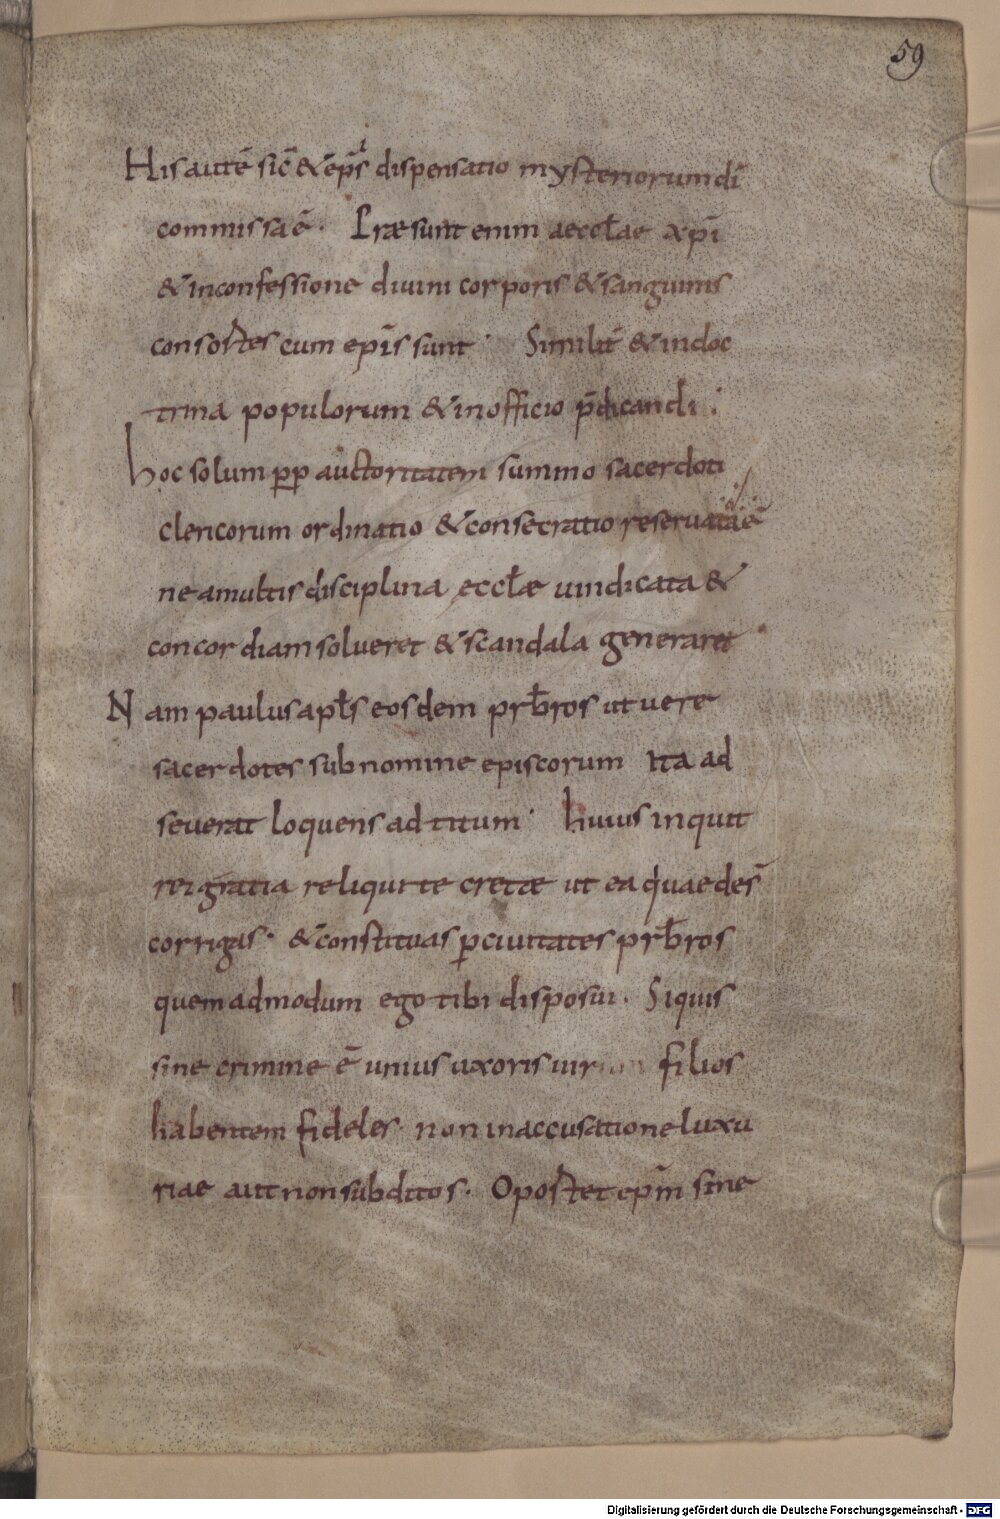 59
His autē sic̄ & ep̄s dispensatio mysteriorum dī
commissa ē. Præsunt enim aeccłae xp̄i
& in confessione divini corporis & sanguinis
consortes cum ep̄is sunt. Similit̄ & in doc
trina populorum & in officio p̄dicandi.
hoc solum ꝓp auctoritatem summo sacerdoti
clericorum ordinatio & consecratio reservata ē
ne a multis disciplina eccłæ vindicata &
concordiam solveret & scandala generaret
Nam paulus apłs eosdem prb̄ros ut vere
sacerdotes sub nomine episcorum ita ad
severat loquens ad titum. huius inquit
rei gratia reliqui te cretæ ut ea quae des̄
corrigas. & constituas ꝑ civitates prb̄ros
quemadmodum ego tibi disposui. Siquis
sine crimine ē unius uxoris vir filios
habentem fideles. non in accusatione luxu
riae aut non subditos. Oportet ep̄m sine
Digitalisierung gefördert durch die Deutsche Forschungsgemeinschaft - DFG